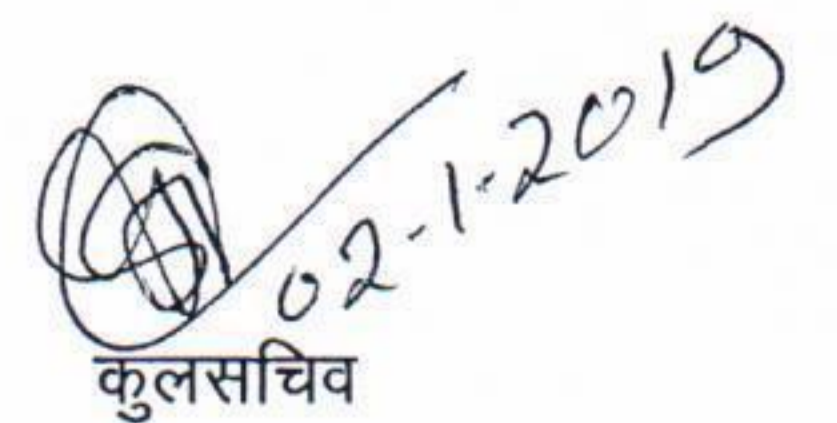 02-1-2019
कुलसचिव